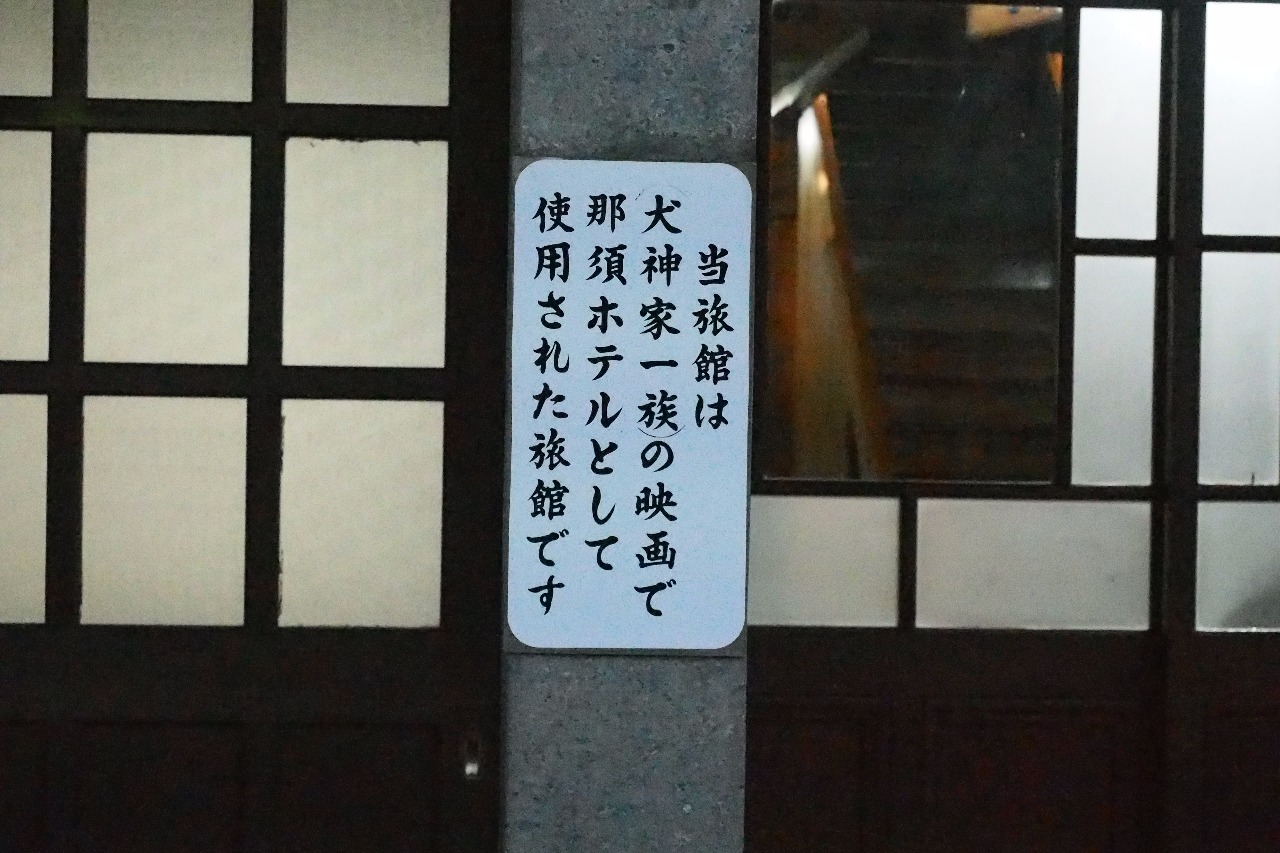 当旅館は
(犬神家一族)の映画で
那須ホテルとして
使用された旅館です